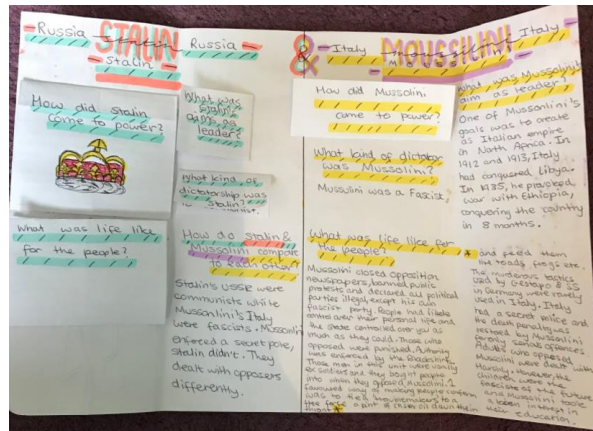 Russia STALIN Russia
Stalin
& Italy MOUSSILINI Italy
How did Stalin
come to power?
What was
Stalin's
aims as
leader?
What kind of
dictatorship was
Stalin?
What was life like
for the people?
How do Stalin &
Mussolini compare
to each other?
Stalin's USSR were
communists while
Mussonlini's Italy
were fascists. Mussonlini
enforced a secret police,
Stalin didn't. They
dealt with opposers
differently.
How did Mussolini
come to power?
What kind of dictator
was Mussolini?
Mussolini was a Fascist,
What was life like for
the people?
Mussolini closed opposition
newspapers, banned public
protests and declared all political
parties illegal, except his own
fascist party. People had
control over their personal life and
the state controlled over you as
much as they could. Those who
opposed were punished. Authority
was enforced by the Blackshirts.
Those men in this unit were usually
ex soldiers and they bought people
into when they opposed Mussolini. A
favoured way of making people conform
was to tie 'troublemakers' to a
tree force a pint of down their
throat
What was Mussolini's
aim as leader?
One of Mussonlini's
goals was to create
an Italian empire
in North Africa. In
1912 and 1913, Italy
had conquered Libya.
In 1935, he provoked
war with Ethiopia,
conquering the country
in 8 months.
and feed them
live toads, frogs etc.
The murderous tactics
used by Gestapo & SS
in Germany were rarely
used in Italy. Italy
had a secret police and
the death penalty was
restored by Mussolini
for only serious offences.
Adults who opposed
Mussolini were dealt with
harshly. However, the
children were the
fascists of the future
and Mussolini took
a keen interest in
their education.